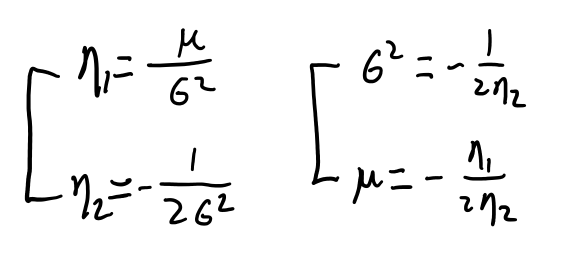 η₁ = μ/σ²
η₂ = -1/(2σ²)
σ² = -1/(2η₂)
μ = -η₁/(2η₂)